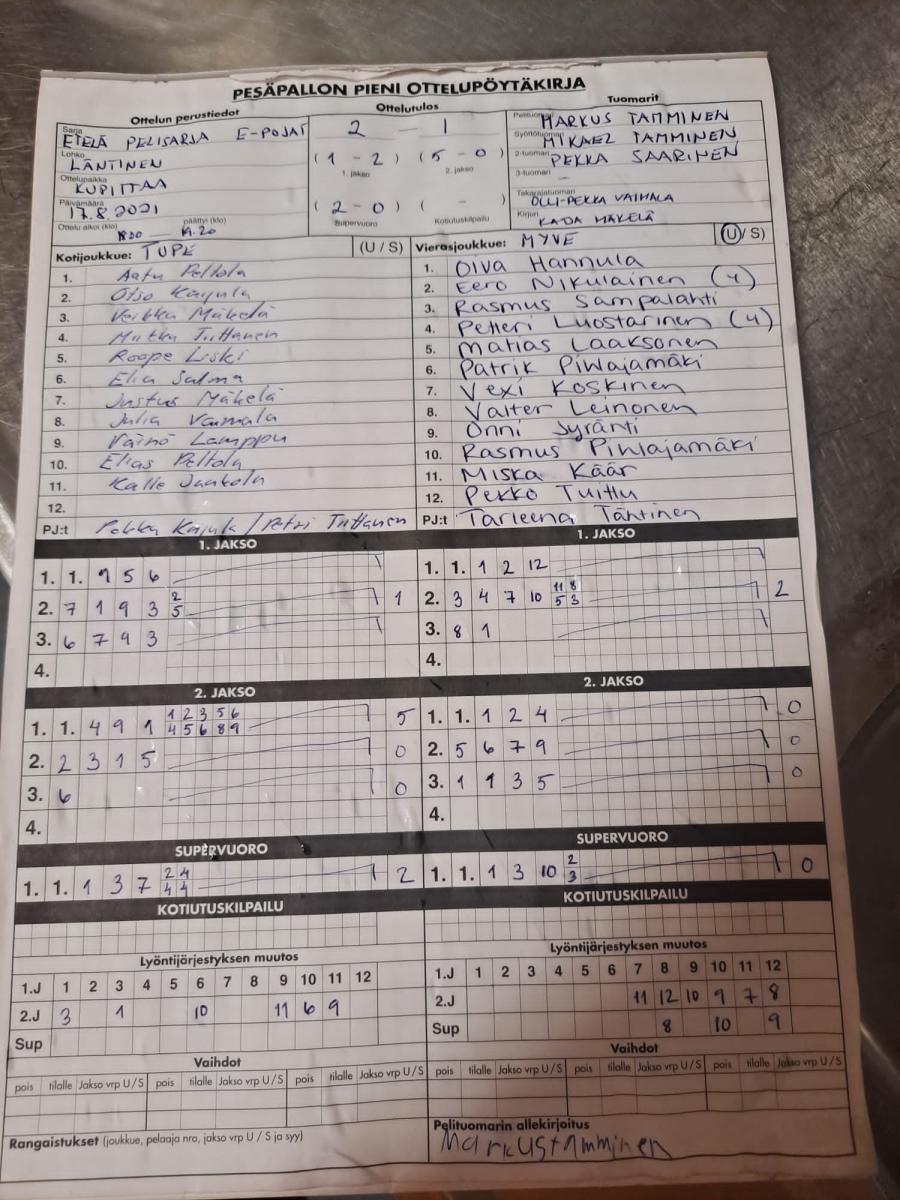 PESÄPALLON PIENI OTTELUPÖYTÄKIRJA
Ottelun perustiedot Ottelutulos Tuomarit
Sarja ETELÄ PELISARJA E-POJAT
2 - 1
Pelituomari MARKUS TAMMINEN
Lohko LÄNTINEN
(1 - 2) (5 - 0)
1. jakso 2. jakso
Syöttötuomari MIKAEL TAMMINEN
2-tuomari PEKKA SAARINEN
3-tuomari -
Ottelupaikka KUPITTAA
Päivämäärä 17.8.2021
(2 - 0) ( - )
Supervuoro Kotiutuskilpailu
Takarajatuomari OLLI-PEKKA VAIMALA
Ottelu alkoi (klo) 1800 päättyi (klo) 19.20
Kirjuri KAIJA MÄKELÄ
Kotijoukkue: TUPE (U / S) Vierasjoukkue: MYVE (U / S)
1. Aatu Peltola 1. Oiva Hannula
2. Otso Kajula 2. Eero Nikulainen (4)
3. Veikka Mäkelä 3. Rasmus Sampalahti
4. Matka Tuttanen 4. Petteri Luostarinen (4)
5. Roope Liski 5. Matias Laaksonen
6. Elia Salma 6. Patrik Pihlajamäki
7. Justus Mäkelä 7. Vexi Koskinen
8. Julia Vaimala 8. Valter Leinonen
9. Väinö Lamppu 9. Onni Syränti
10. Elias Peltola 10. Rasmus Pihlajamäki
11. Kalle Jaakola 11. Miska Käär
12. 12. Pekko Tuittu
PJ:t Pekka Kajula / Petri Tuttanen PJ:t Tarleena Tähtinen
1. JAKSO 1. JAKSO
1. 1. 9 5 6 1. 1. 1 2 12
2. 7 1 9 3 2 5 1 2. 3 4 7 10 11 8 5 3 2
3. 6 7 9 3 3. 8 1
4. 4.
2. JAKSO 2. JAKSO
1. 1. 4 9 1 1 2 3 5 6 4 5 6 8 9 5 1. 1. 1 2 4 0
2. 2 3 1 5 0 2. 5 6 7 9 0
3. 6 0 3. 1 1 3 5 0
4. 4.
SUPERVUORO SUPERVUORO
1. 1. 1 3 7 2 4 4 4 2 1. 1. 1 3 10 2 3 0
KOTIUTUSKILPAILU KOTIUTUSKILPAILU
Lyöntijärjestyksen muutos Lyöntijärjestyksen muutos
1.J 1 2 3 4 5 6 7 8 9 10 11 12 1.J 1 2 3 4 5 6 7 8 9 10 11 12
2.J 3 1 10 11 6 9 2.J 11 12 10 9 7 8
Sup Sup 8 10 9
Vaihdot Vaihdot
pois tilalle Jakso vrp U / S pois tilalle Jakso vrp U / S pois tilalle Jakso vrp U / S pois tilalle Jakso vrp U / S pois tilalle Jakso vrp U / S pois tilalle Jakso vrp U / S
Rangaistukset (joukkue, pelaaja nro, jakso vrp U / S ja syy) Pelituomarin allekirjoitus
Markustamminen